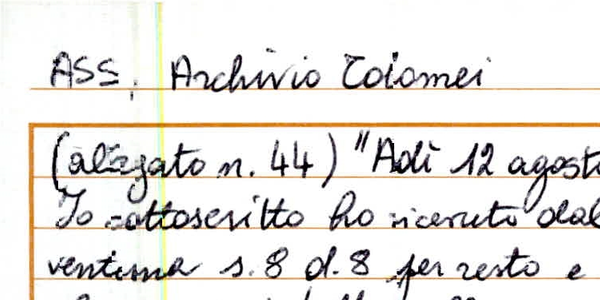 ASS, Archivio Tolomei
(allegato n. 44) "Adì 12 agosto
Io sottoscritto ho ricevuto dal
ventima s. 8 d. 8 per resto e